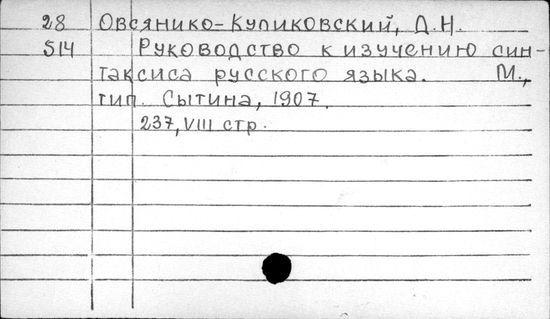 28 Овсянико-Куликовский, Д.Н.
514 Руководство к изучению син-
таксиса русского языка. М.,
тип. Сытина, 1907.
237, VIII стр.